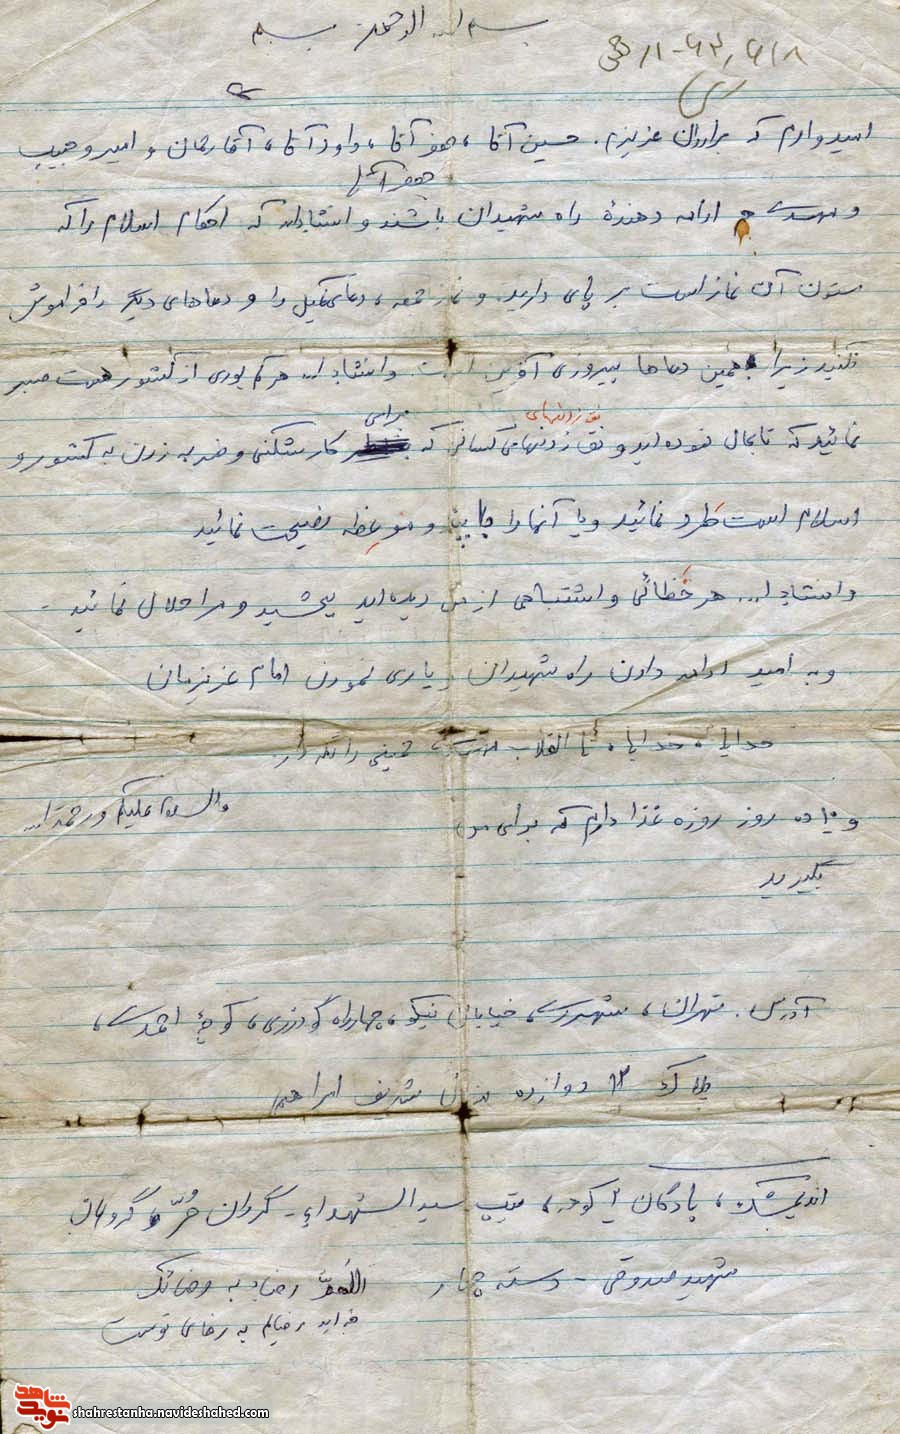 بسم الله الرحمن
۲
امیدوارم که برادران عزیزم. حسین آقا، جعفر آقا، داود آقا، آقا رحمان و امیر و حبیب
جعفر آقا
و مهدی ادامه دهندهٔ راه شهیدان باشند و انشاءالله که احکام اسلام را که
ستون آن نماز است بر پای دارید. و نماز جمعه، دعای کمیل را و دعاهای دیگر را فراموش
نکنید زیرا همین دعاها پیروزی آفرین است وانشاءا... هر کمبودی از کشور هست صبر
نق زدنهای
برای
نمائید که تابحال نموده‌اید و نق زدنهای کسانی که کارشکنی و ضربه زدن به کشور و
اسلام است طرد نمائید و یا آنها را با و موعظه نصیحت نمائید
وانشاءا... هر خطائی و اشتباهی از من دیده‌اید ببخشید و مرا حلال نمائید -
و به امید ادامه دادن راه شهیدان و یاری نمودن امام عزیزمان
خدایا، خدایا، تا انقلاب مهدی، خمینی را نگهدار
والسلام علیکم و رحمةا...
و ۱۰ ده روز روزه قضا دارم که برای من
بگیرید
آدرس. تهران، شهرری، خیابان نیکو، چهارراه گودرزی، کوچهٔ احمدی،
پلاک ۱۲ دوازده منزل شریف ابراهیم
اندیمشک، پادگان، تیپ سیدالشهداء - گردان حُرّ، گروهان
شهید صدوقی - دسته چهار
اللهمّ رضاً به رضائک
خدایا رضایم به رضای توست
نوید شاهد
shahrestanha.navideshahed.com